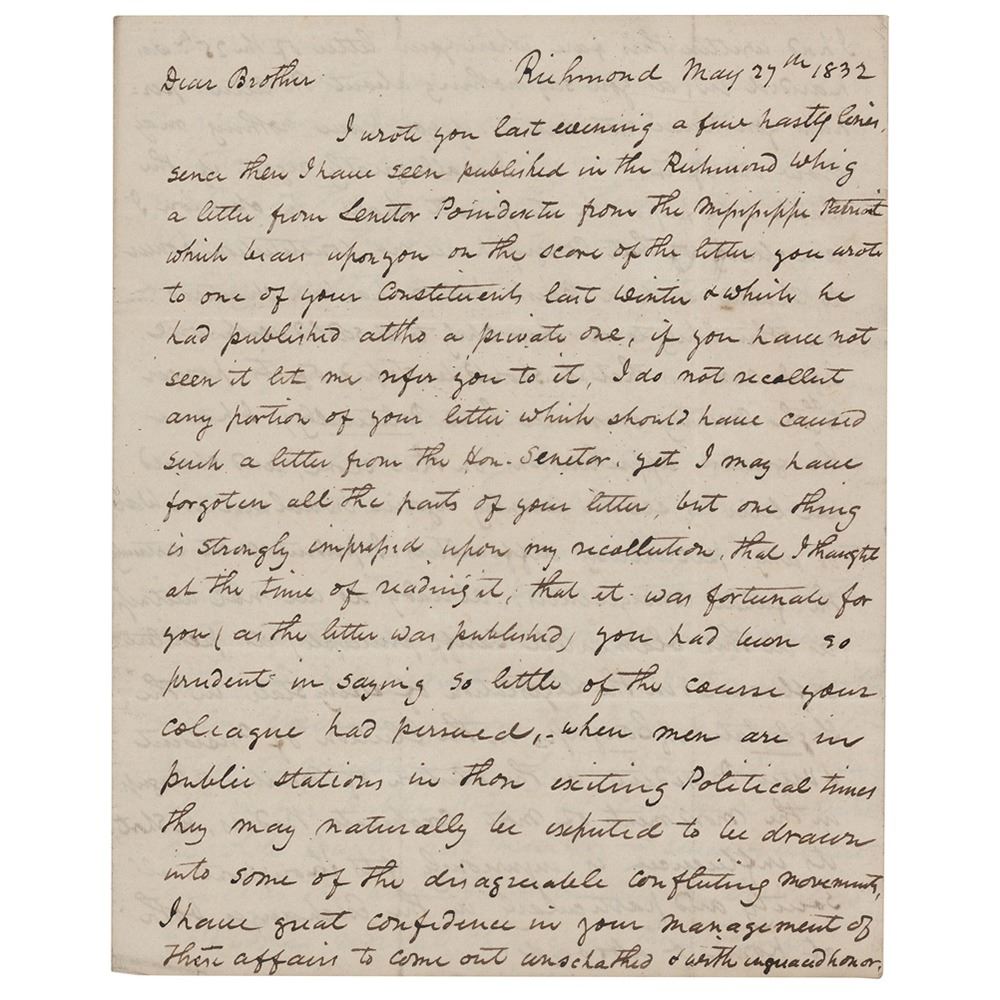 Dear Brother Richmond May 27th 1832
I wrote you last evening a few hasty lines,
sence then I have seen published in the Richmond Whig
a letter from Senetor Poindexter from the Missisippe Patriot
which bears upon you on the score of the letter you wrote
to one of your Constituents last winter & which he
had published altho a private one, if you have not
seen it let me refer you to it, I do not recollect
any portion of your letter which should have caused
such a letter from the Hon. Senetor. yet I may have
forgoten all the parts of your letter, but one thing
is strongly impressed upon my recollection, that I thought
at the time of reading it, that it was fortunate for
you (as the letter was published) you had been so
prudent in saying so little of the course your
coleague had persued, - when men are in
public stations in thes exciting Political times
they may naturally be expected to be drawn
into some of the disagreeable conflicting movements,
I have great confidence in your management of
these affairs to come out unschathed & with honor.